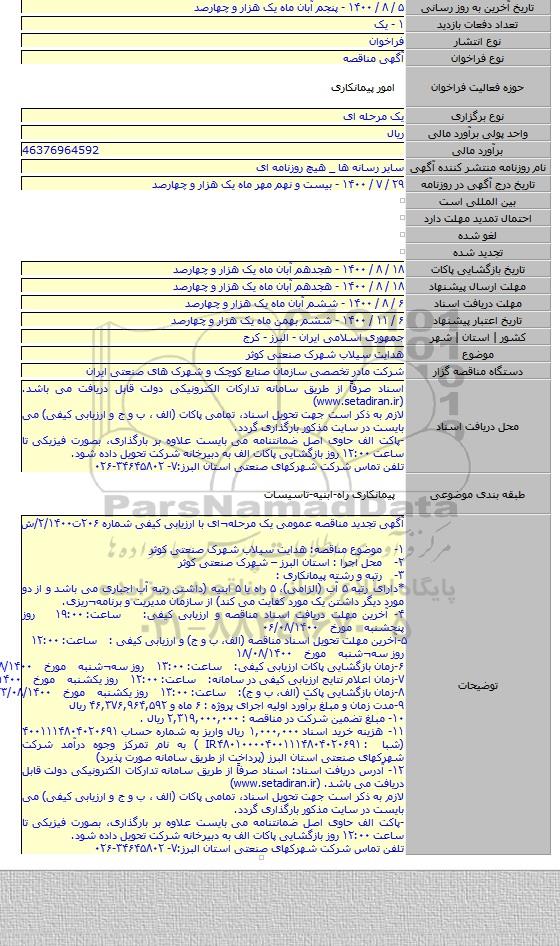 تاریخ آخرین به روز رسانی
۵ / ۸ / ۱۴۰۰ - پنجم آبان ماه یک هزار و چهارصد
تعداد دفعات بازدید
۱ - یک
نوع انتشار
فراخوان
نوع فراخوان
آگهی مناقصه
حوزه فعالیت فراخوان
امور پیمانکاری
نوع برگزاری
یک مرحله ای
واحد پولی برآورد مالی
ریال
برآورد مالی
46376964592
نام روزنامه منتشر کننده آگهی
سایر رسانه ها _ هیچ روزنامه ای
تاریخ درج آگهی در روزنامه
۲۹ / ۷ / ۱۴۰۰ - بیست و نهم مهر ماه یک هزار و چهارصد
بین المللی است
احتمال تمدید مهلت دارد
لغو شده
تجدید شده
تاریخ بازگشایی پاکات
۱۸ / ۸ / ۱۴۰۰ - هجدهم آبان ماه یک هزار و چهارصد
مهلت ارسال پیشنهاد
۱۸ / ۸ / ۱۴۰۰ - هجدهم آبان ماه یک هزار و چهارصد
مهلت دریافت اسناد
۶ / ۸ / ۱۴۰۰ - ششم آبان ماه یک هزار و چهارصد
تاریخ اعتبار پیشنهاد
۶ / ۱۱ / ۱۴۰۰ - ششم بهمن ماه یک هزار و چهارصد
کشور | استان | شهر
جمهوری اسلامی ایران - البرز - کرج
موضوع
هدایت سیلاب شهرک صنعتی کوثر
دستگاه مناقصه گزار
شرکت مادر تخصصی سازمان صنایع کوچک و شهرک های صنعتی ایران
محل دریافت اسناد
اسناد صرفاً از طریق سامانه تدارکات الکترونیکی دولت قابل دریافت می باشد.
(www.setadiran.ir)
لازم به ذکر است جهت تحویل اسناد، تمامی پاکات (الف ، ب و ج و ارزیابی کیفی) می
بایست در سایت مذکور بارگذاری گردد.
-پاکت الف حاوی اصل ضمانتنامه می بایست علاوه بر بارگذاری، بصورت فیزیکی تا
ساعت ۱۲:۰۰ روز بازگشایی پاکات الف به دبیرخانه شرکت تحویل داده شود.
تلفن تماس شرکت شهرکهای صنعتی استان البرز:۷- ۳۴۶۴۵۸۰۲-۰۲۶
طبقه بندی موضوعی
پیمانکاری راه-ابنیه-تاسیسات
توضیحات
آگهی تجدید مناقصه عمومی یک مرحله¬ای با ارزیابی کیفی شماره ۲۰۶ت۲/۱۴۰۰/ش
۱- موضوع مناقصه: هدایت سیلاب شهرک صنعتی کوثر
۲- محل اجرا : استان البرز – شهرک صنعتی کوثر
۳- رتبه و رشته پیمانکاری :
*دارای رتبه ۵ آب (الزامی)، ۵ راه یا ۵ ابنیه (داشتن رتبه آب اجباری می باشد و از دو
مورد دیگر داشتن یک مورد کفایت می کند) از سازمان مدیریت و برنامه¬ریزی.
۴- آخرین مهلت دریافت اسناد مناقصه و ارزیابی کیفی: ساعت: ۱۹:۰۰ روز
پنجشنبه مورخ ۰۶/۰۸/۱۴۰۰
۵-آخرین مهلت تحویل اسناد مناقصه (الف، ب و ج) و ارزیابی کیفی : ساعت: ۱۲:۰۰
روز سه¬شنبه مورخ ۱۸/۰۸/۱۴۰۰
۶-زمان بازگشایی پاکات ارزیابی کیفی: ساعت: ۱۳:۰۰ روز سه¬شنبه مورخ
۷-زمان اعلام نتایج ارزیابی کیفی در سامانه: ساعت: ۱۲:۰۰ روز یکشنبه مورخ
۸-زمان بازگشایی پاکت (الف، ب و ج): ساعت: ۱۳:۰۰ روز یکشنبه مورخ
۹-مدت زمان و مبلغ برآورد اولیه اجرای پروژه : ۶ ماه و ۴۶,۳۷۶,۹۶۴,۵۹۲ ریال
۱۰- مبلغ تضمین شرکت در مناقصه : ۲,۳۱۹,۰۰۰,۰۰۰ ریال .
۱۱- هزینه خرید اسناد ۱,۰۰۰,۰۰۰ ریال واریز به شماره حساب ۴۰۰۱۱۱۴۸۰۴۰۲۰۶۹۱
(شبا : IR۴۸۰۱۰۰۰۰۴۰۰۱۱۱۴۸۰۴۰۲۰۶۹۱ ) به نام تمرکز وجوه درآمد شرکت
شهرکهای صنعتی استان البرز (پرداخت از طریق سامانه صورت پذیرد)
۱۲- آدرس دریافت اسناد: اسناد صرفاً از طریق سامانه تدارکات الکترونیکی دولت قابل
دریافت می باشد. (www.setadiran.ir)
لازم به ذکر است جهت تحویل اسناد، تمامی پاکات (الف ، ب و ج و ارزیابی کیفی) می
بایست در سایت مذکور بارگذاری گردد.
-پاکت الف حاوی اصل ضمانتنامه می بایست علاوه بر بارگذاری، بصورت فیزیکی تا
ساعت ۱۲:۰۰ روز بازگشایی پاکات الف به دبیرخانه شرکت تحویل داده شود.
تلفن تماس شرکت شهرکهای صنعتی استان البرز:۷- ۳۴۶۴۵۸۰۲-۰۲۶
ParsNamadData